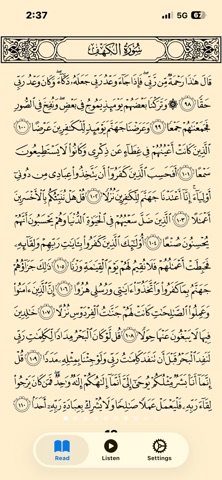 2:37
5G
67
سُورَةُ الكَهْفِ
قَالَ هَٰذَا رَحْمَةٌ مِّن رَّبِّي ۖ فَإِذَا جَاءَ وَعْدُ رَبِّي جَعَلَهُ دَكَّاءَ ۖ وَكَانَ وَعْدُ رَبِّي
حَقًّا ٩٨ ۞ وَتَرَكْنَا بَعْضَهُمْ يَوْمَئِذٍ يَمُوجُ فِي بَعْضٍ ۖ وَنُفِخَ فِي الصُّورِ
فَجَمَعْنَاهُمْ جَمْعًا ٩٩ وَعَرَضْنَا جَهَنَّمَ يَوْمَئِذٍ لِّلْكَافِرِينَ عَرْضًا ١٠٠
الَّذِينَ كَانَتْ أَعْيُنُهُمْ فِي غِطَاءٍ عَن ذِكْرِي وَكَانُوا لَا يَسْتَطِيعُونَ
سَمْعًا ١٠١ أَفَحَسِبَ الَّذِينَ كَفَرُوا أَن يَتَّخِذُوا عِبَادِي مِن دُونِي
أَوْلِيَاءَ ۚ إِنَّا أَعْتَدْنَا جَهَنَّمَ لِلْكَافِرِينَ نُزُلًا ١٠٢ قُلْ هَلْ نُنَبِّئُكُم بِالْأَخْسَرِينَ
أَعْمَالًا ١٠٣ الَّذِينَ ضَلَّ سَعْيُهُمْ فِي الْحَيَاةِ الدُّنْيَا وَهُمْ يَحْسَبُونَ أَنَّهُمْ
يُحْسِنُونَ صُنْعًا ١٠٤ أُولَٰئِكَ الَّذِينَ كَفَرُوا بِآيَاتِ رَبِّهِمْ وَلِقَائِهِ
فَحَبِطَتْ أَعْمَالُهُمْ فَلَا نُقِيمُ لَهُمْ يَوْمَ الْقِيَامَةِ وَزْنًا ١٠٥ ذَٰلِكَ جَزَاؤُهُمْ
جَهَنَّمُ بِمَا كَفَرُوا وَاتَّخَذُوا آيَاتِي وَرُسُلِي هُزُوًا ١٠٦ إِنَّ الَّذِينَ آمَنُوا
وَعَمِلُوا الصَّالِحَاتِ كَانَتْ لَهُمْ جَنَّاتُ الْفِرْدَوْسِ نُزُلًا ١٠٧ خَالِدِينَ
فِيهَا لَا يَبْغُونَ عَنْهَا حِوَلًا ١٠٨ قُل لَّوْ كَانَ الْبَحْرُ مِدَادًا لِّكَلِمَاتِ رَبِّي
لَنَفِدَ الْبَحْرُ قَبْلَ أَن تَنفَدَ كَلِمَاتُ رَبِّي وَلَوْ جِئْنَا بِمِثْلِهِ مَدَدًا ١٠٩ قُلْ
إِنَّمَا أَنَا بَشَرٌ مِّثْلُكُمْ يُوحَىٰ إِلَيَّ أَنَّمَا إِلَٰهُكُمْ إِلَٰهٌ وَاحِدٌ ۖ فَمَن كَانَ يَرْجُو
لِقَاءَ رَبِّهِ فَلْيَعْمَلْ عَمَلًا صَالِحًا وَلَا يُشْرِكْ بِعِبَادَةِ رَبِّهِ أَحَدًا ١١٠
Read
Listen
Settings